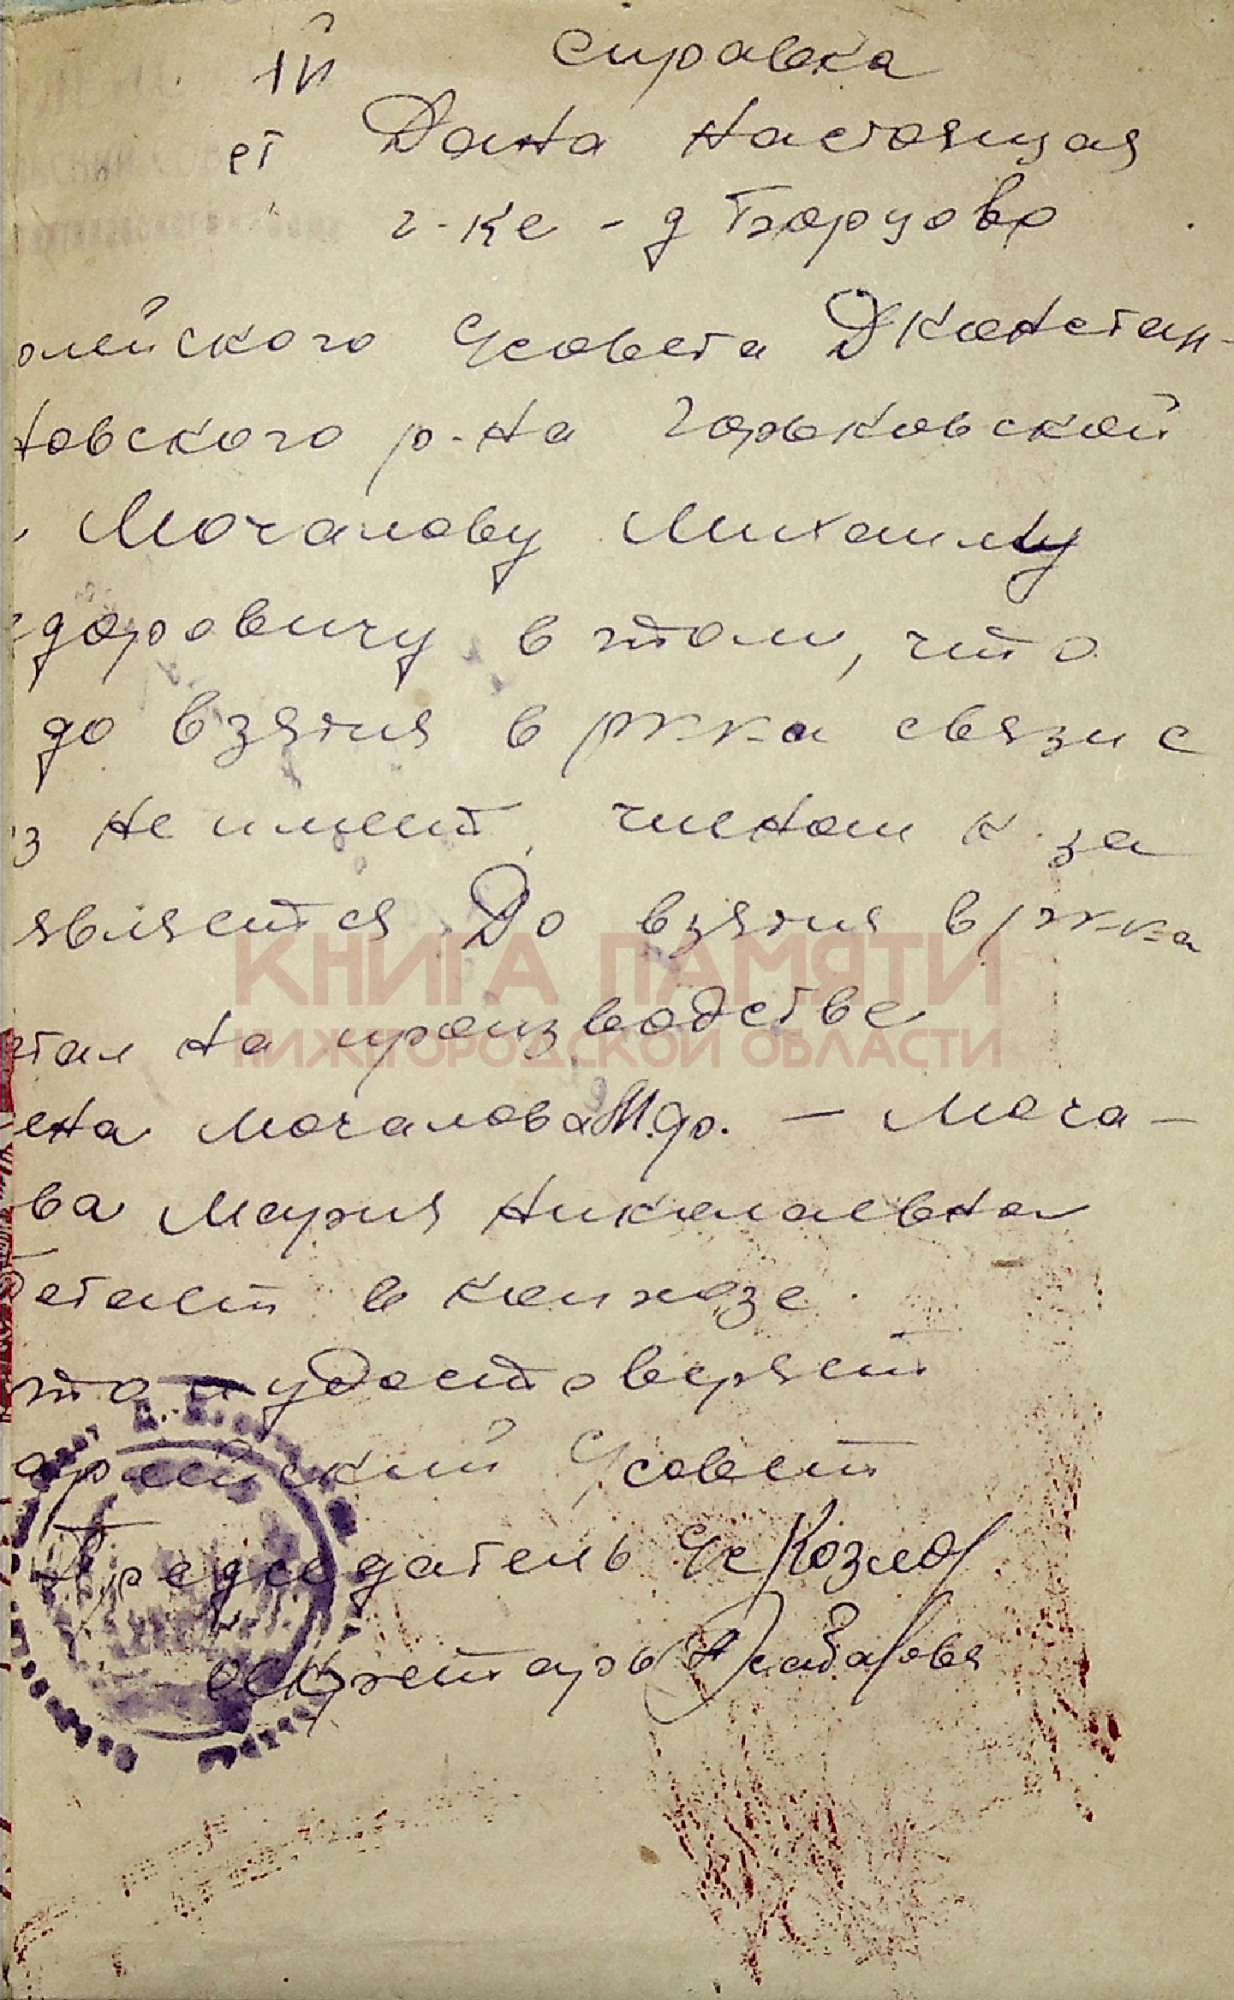 ий справка
ет Дана настоящая
г-ке - д Борцово
олейского С/совета Д Констан-
новского р-на Горьковской
Мочалову Михаилу
едоровичу в том, что
до взятия в рккa связи с
з не имеет, членом к-за
является До взятия в рккa
КНИГА ПАМЯТИ
тал на производстве
НИЖЕГОРОДСКОЙ ОБЛАСТИ
ена Мочалова М.Фр. - Моча-
ва Мария Николаевна
ботает в колхозе.
то и удостоверяет
С/совет
Председатель С/с Козлов
секретарь